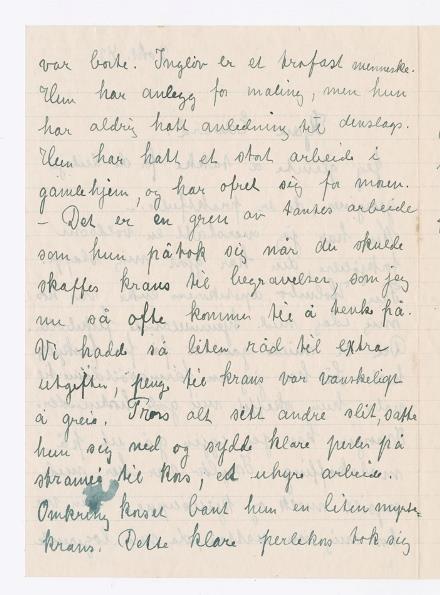 var borte. Ingløv er et trofast menneske.
Hun har anlegg for maling, men hun
har aldrig hatt anledning til denslags.
Hun har hatt et stort arbeide i
gamlehjem, og har ofret sig for moren.
– Det er en gren av tantes arbeide
som hun påtok sig når du skulde
skaffes krans til begravelser som jeg
nu så ofte kommer til å tenke på.
Vi hadde så liten råd til extra
utgifter, penge til krans var vanskeligt
å greie. Tross alt sitt andre slit, satte
hun sig ned og sydde klare perler på
stramei til kors, et uhyre arbeide.
Omkring korset bant hun en liten myrte-
krans. Dette klare perlekors tok sig